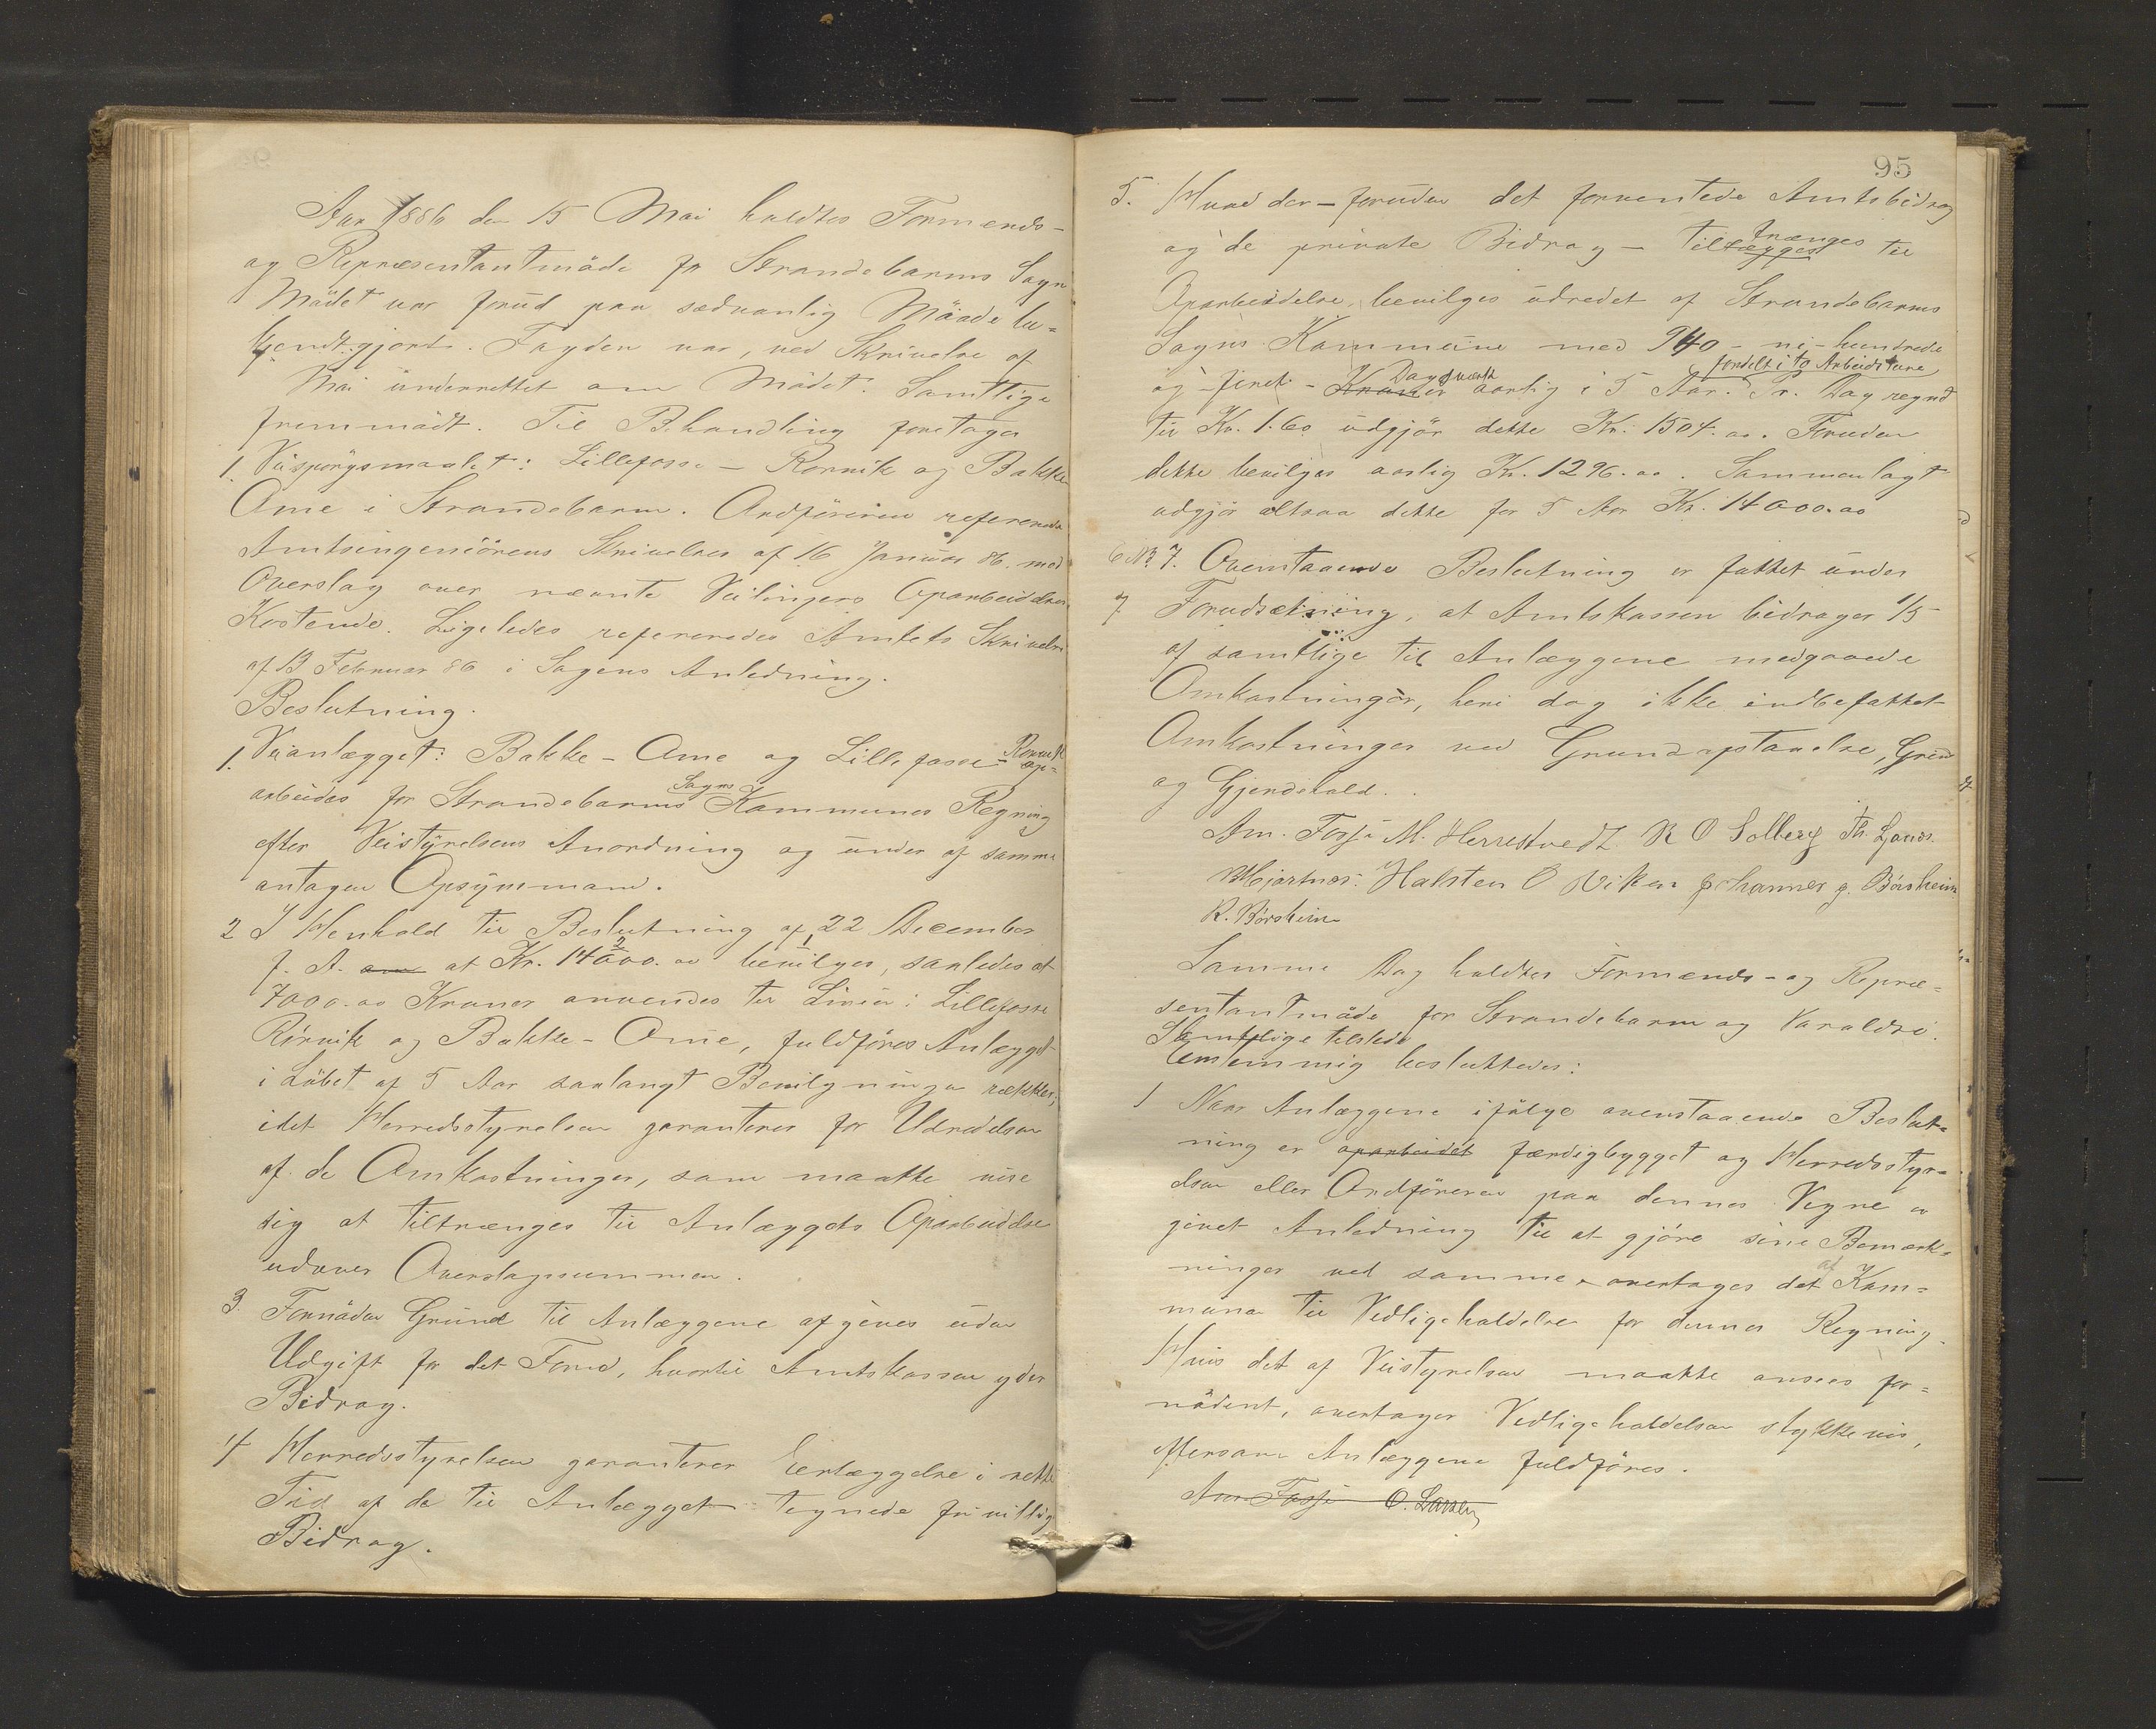 Aar 1886 den 15 Mai holdtes Formænds-
og Repræsentantmöde for Strandebarms Sogn
Mödet var forud paa sædvanlig Maade be-
kjendtgjordt. Fogden var, ved Skrivelse af
Mai underrettet om Mödet. Samtlige
fremmödt. Til Behandling foretoges
1. Veispörgsmaalet: Lillefosse - Rörvik og Bakke
Ome i Strandebarm. Ordföreren refererede
Amtsingeniörens Skrivelse af 16 Januar 86. med
Overslag over nævnte Veilinjers Oparbeidelses
Kostende. Ligeledes refereredes Amtets Skrivelse
af 13 Februar 86 i Sagens Anledning.
Beslutning.
1. Veianlægget: Bakke - Ome og Lillefosse - Rörvik op-
arbeides for Strandebarms Sogns Kommunes Regning
efter Veistyrelsens Anordning og under af samme
antagen Opsynsmand.
2 I Henhold til Beslutning af 22 December
f. A. at Kr. 14000.00 bevilges, saaledes at
7000.00 Kroner anvendes til Linien: Lillefosse
Rörvik og Bakke - Ome, fuldföres Anlægget
i Löbet af 5 Aar saalangt Bevilgningen rækker,
idet Herredsstyrelsen garanterer for Udredelsen
af de Omkostninger, som maatte vise
sig at tiltrænges til Anlæggets Oparbeidelse
udover Overslagssummen.
3. Fornöden Grund til Anlæggene afgives uden
Udgift for det Fond, hvortil Amtskassen yder
Bidrag.
4 Herredsstyrelsen garanterer Erlæggelse i rette
Tid af de til Anlægget tegnede frivillig
Bidrag.
95
5. Hvad der - foruden det forventede Amtsbidrag
og de private Bidrag - tiltrænges til
Oparbeidelse, bevilges udredet af Strandebarms
Sogns Kommune med 940 - ni - hundrede
og firti - Kroner Dagsværk aarlig i 5 Aar. fordelt i to Arbeidsture Pr. Dag regnet
til Kr. 1.60 udgjör dette Kr. 1504.00. Foruden
dette bevilges aarlig Kr. 1296.00. Sammenlagt
udgjör altsaa dette for 5 Aar Kr. 14000.00
6 No 7. Ovenstaaende Beslutning er fattet under
7 Forudsætning, at Amtskassen bidrager 1/5
af samtlige til Anlæggene medgaaede
Omkostninger, heri dog ikke indbefattet
Omkostninger ved Grundafstaaelse, Grind
og Gjerdehold.
Am. Fosse M. Herrestvedt R O Solberg Th. Ljones.
Hjartnes. Halsten O Viken Johannes J. Börsheim
R. Börsheim
Samme Dag holdtes Formænds- og Repræ-
sentantmöde for Strandebarm og Varaldsö.
Samtlige tilstede
Enstemmig besluttedes:
1 Naar Anlæggene ifölge ovenstaaende Beslut-
ning er oparbeidet færdigbygget og Herredsstyr-
elsen eller Ordföreren paa dennes Vegne er
givet Anledning til at gjöre sine Bemærk-
ninger ved samme, overtages det af Kom-
munen til Vedligeholdelse for dennes Regning.
Hvis det af Veistyrelsen maatte ansees for-
nödent, overtages Vedligeholdelsen stykkevis,
eftersom Anlæggene fuldföres.
Am Fosse O. Larsen